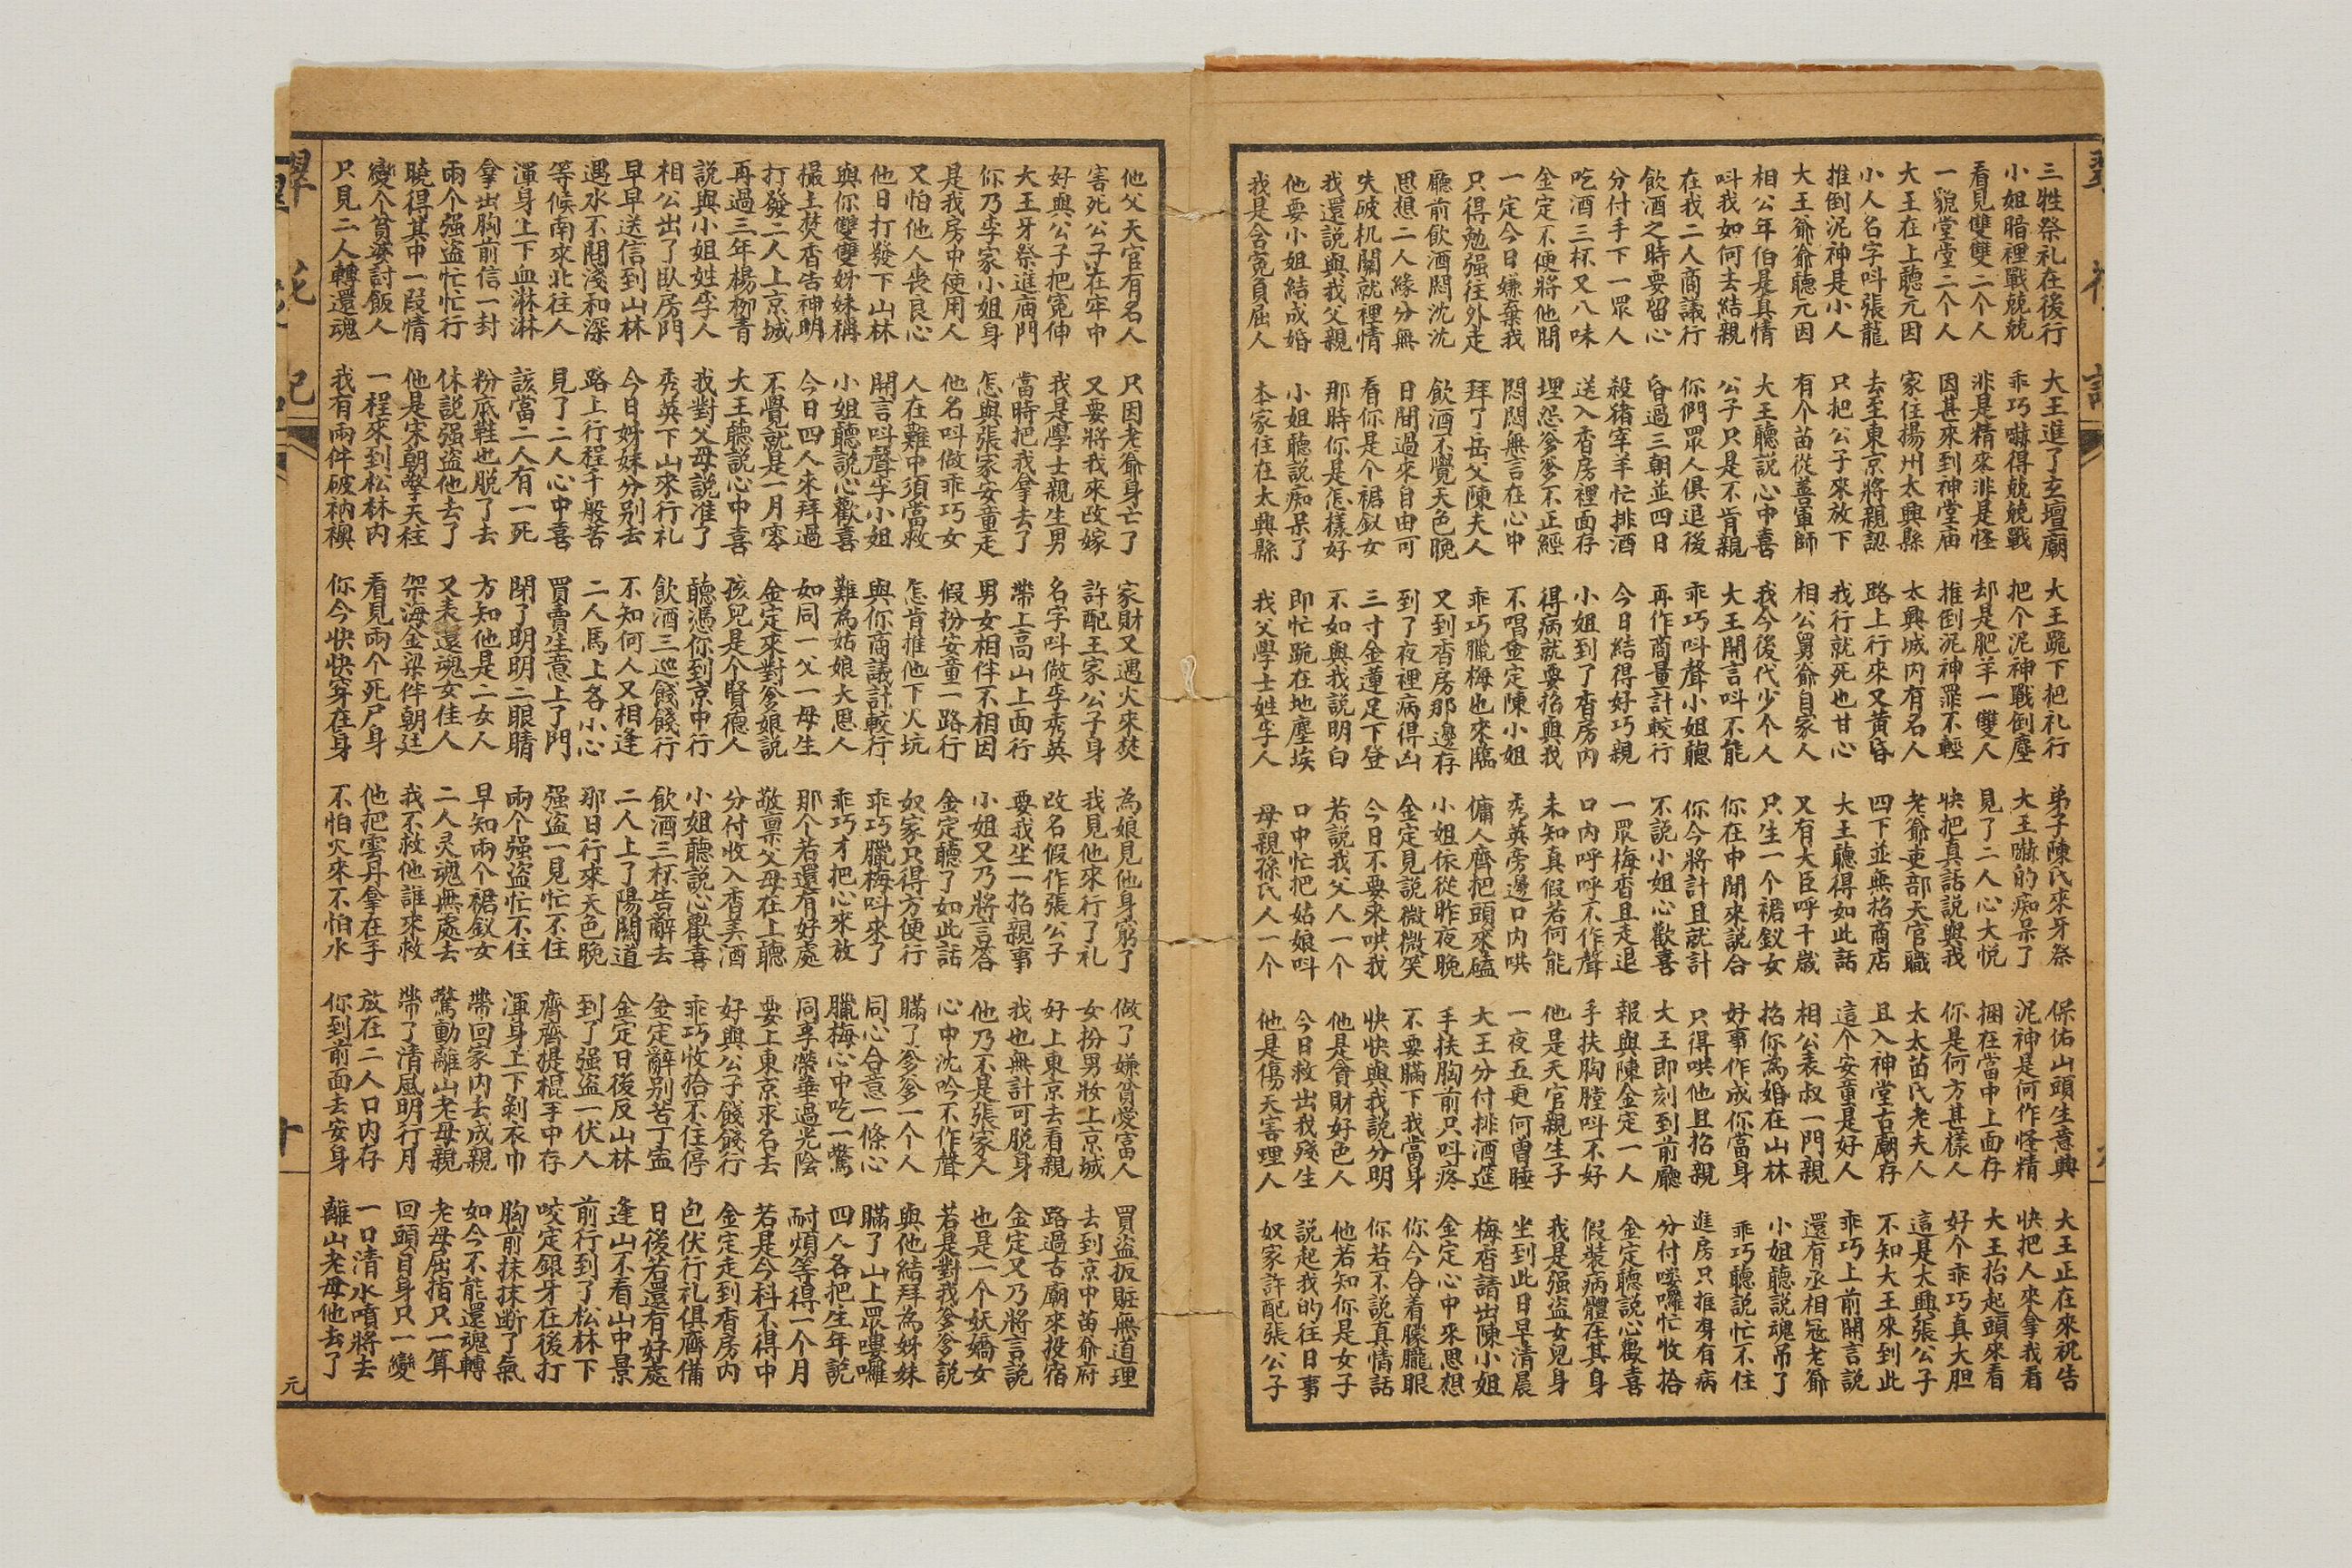 三牲祭礼在後行 大王進了玄壇廟 大王跪下把礼行 弟子陳氏來牙祭 保佑山頭生意興 大王正在來祝告
小姐暗裡戰兢兢 乖巧嚇得兢兢戰 把个泥神戰倒塵 大王嚇的痴呆了 泥神是何作怪精 快把人來拿我看
看見雙雙二个人 非是精來非是怪 却是肥羊一雙人 見了二人心大悦 捆在當中上面存 大王抬起頭來看
一貌堂堂二个人 因甚來到神堂庙 推倒泥神罪不輕 快把真話説與我 你是何方甚樣人 好个乖巧真大胆
大王在上聽元因 家住揚州太興縣 太興城内有名人 老爺吏部天官職 太太苗氏老夫人 這是太興張公子
小人名字叫張龍 去至東京將親認 路上行來又黄昏 四下並無招商店 且入神堂古廟存 不知大王來到此
推倒泥神是小人 只把公子來放下 我行就死也甘心 大王聽得如此話 這个安童是好人 乖巧上前開言説
大王爺爺聽元因 有个苗從善軍師 相公舅爺自家人 又有大臣呼千歲 相公表叔一門親 還有丞相冦老爺
相公年伯是真情 大王聽説心中喜 我今後代少个人 只生一个裙釵女 招你為婚在山林 小姐聽説魂吊了
叫我如何去結親 公子只是不肯親 大王開言叫不能 你在中間來説合 好事作成你當身 乖巧聽説忙不住
在我二人商議行 你們眾人俱退後 乖巧叫聲小姐聽 你今將計且就計 只得哄他且招親 進房只推身有病
飲酒之時要留心 昏過三朝並四日 再作商量計較行 不説小姐心歡喜 大王即刻到前廳 分付嘍囉忙收拾
分付手下一眾人 殺猪宰羊忙排酒 今日結得好巧親 一眾梅香且走退 報與陳金定一人 金定聽説心歡喜
吃酒三杯又八味 送入香房裡面存 小姐到了香房内 口内呼呼不作聲 手扶胸膛叫不好 假裝病體在其身
金定不便將他閗 埋怨爹爹不正經 得病就要掐與我 未知真假若何能 他是天官親生子 我是强盜女兒身
一定今日嫌棄我 悶悶無言在心中 不唱金定陳小姐 秀英旁邊口内哄 一夜五更何曾睡 坐到此日早清晨
只得勉强往外走 拜了岳父陳夫人 乖巧臘梅也來臨 傭人齊把頭來磕 大王分付排酒筵 梅香請出陳小姐
廳前飲酒悶沈沈 飲酒不覺天色晚 又到香房那邊存 小姐依從昨夜晚 手扶胸前只叫疼 金定心中來思想
思想二人緣分無 日間過來自由可 到了夜裡病得凶 金定見説微微笑 不要瞞下我當身 你今合着朦朧眼
失破机關就裡情 看你是个裙釵女 三寸金蓮足下登 今日不要來哄我 快快與我説分明 你若不説真情話
我還説與我父親 那時你是怎樣好 不如與我説明白 若説我父人一个 他是貪財好色人 他若知你是女子
他要小姐結成婚 小姐聽説痴呆了 即忙跪在地塵埃 口中忙把姑娘叫 今日救出我殘生 説起我的往日事
我是含寃負屈人 本家住在太興縣 我父學士姓李人 母親孫氏人一个 他是傷天害理人 奴家許配張公子
他父天官有名人 只因老爺身亡了 家財又遇火來焚 為娘見他身窮了 做了嫌貧愛富人 買盜扳賍無道理
害死公子在牢中 又要將我來改嫁 許配王家公子身 我見他來行了礼 女扮男妝上京城 去到京中苗爺府
好與公子把寃伸 我是學士親生男 名字叫做李秀英 改名假作張公子 好上東京去看親 路過古廟來投宿
大王牙祭進庙門 當時把我拿去了 帶上高山上面行 要我坐一招親事 我也無計可脱身 金定又乃將言説
你乃李家小姐身 怎與張家安童走 男女相伴不相因 小姐又乃將言答 他乃不是張家人 也是一个妖嬌女
是我房中使用人 他名叫做乖巧女 假扮安童一路行 金定聽了如此話 心中沈吟不作聲 若是對我爹爹説
又怕他人喪良心 人在難中須當救 怎肯推他下火坑 奴家只得方便行 瞞了爹爹一个人 與他結拜為姊妹
他日打發下山林 開言叫聲李小姐 與你商議計較行 乖巧臘梅叫來了 同心合意一條心 瞞了山上眾嘍囉
與你雙雙姊妹稱 小姐聽説心歡喜 難為姑娘大恩人 乖巧才把心來放 臘梅心中吃一驚 四人各把生年説
撮土焚香告神明 今日四人來拜過 如同一父一母生 那个若還有好處 同享榮華過光陰 耐煩等得一个月
打發二人上京城 不覺就是一月零 金定來對爹娘説 敬禀父母在上聽 要上東京求名去 若是今科不得中
再過三年楊柳青 大王聽説心中喜 孩兒是个賢德人 分付收入香美酒 好與公子餞餞行 金定走到香房内
説與小姐姓李人 我對父母説准了 聽憑你到京中行 小姐聽説心歡喜 乖巧收拾不住停 包伏行礼俱齊備
相公出了臥房門 秀英下山來行礼 飲酒三巡餞餞行 飲酒三杯告辭去 金定辭别苦丁寧 日後若還有好處
早早送信到山林 今日姊妹分别去 不知何人又相逢 二人上了陽關道 金定日後反山林 逢山不看山中景
遇水不問淺和深 路上行程千般苦 二人馬上各小心 那日行來天色晚 到了强盜一伏人 前行到了松林下
等候南來北往人 見了二人心中喜 買賣生意上了門 强盜一見忙不住 齊齊提棍手中存 咬定銀牙在後打
渾身上下血淋淋 該當二人有一死 閉了明明二眼睛 兩个强盜忙不住 渾身上下剥衣巾 胸前抹抹断了氣
拿出胸前信一封 粉底鞋也脱了去 方知他是二女人 早知兩个裙釵女 帶回家内去成親 如今不能還魂轉
兩个强盜忙忙行 休説强盜他去了 又表還魂女佳人 二人灵魂無處去 驚動離山老母親 老母屈指只一算
曉得其中一段情 他是宋朝擎天柱 架海金梁伴朝廷 我不救他誰來救 帶了清風明行月 回頭自身只一變
變个貧婆討飯人 一程來到松林内 看見兩个死尸身 他把雲丹拿在手 放在二人口内存 一口清水噴將去
只見二人轉還魂 我有兩件破衲襖 你今快快穿在身 不怕火來不怕水 你到前面去安身 離山老母他去了
元